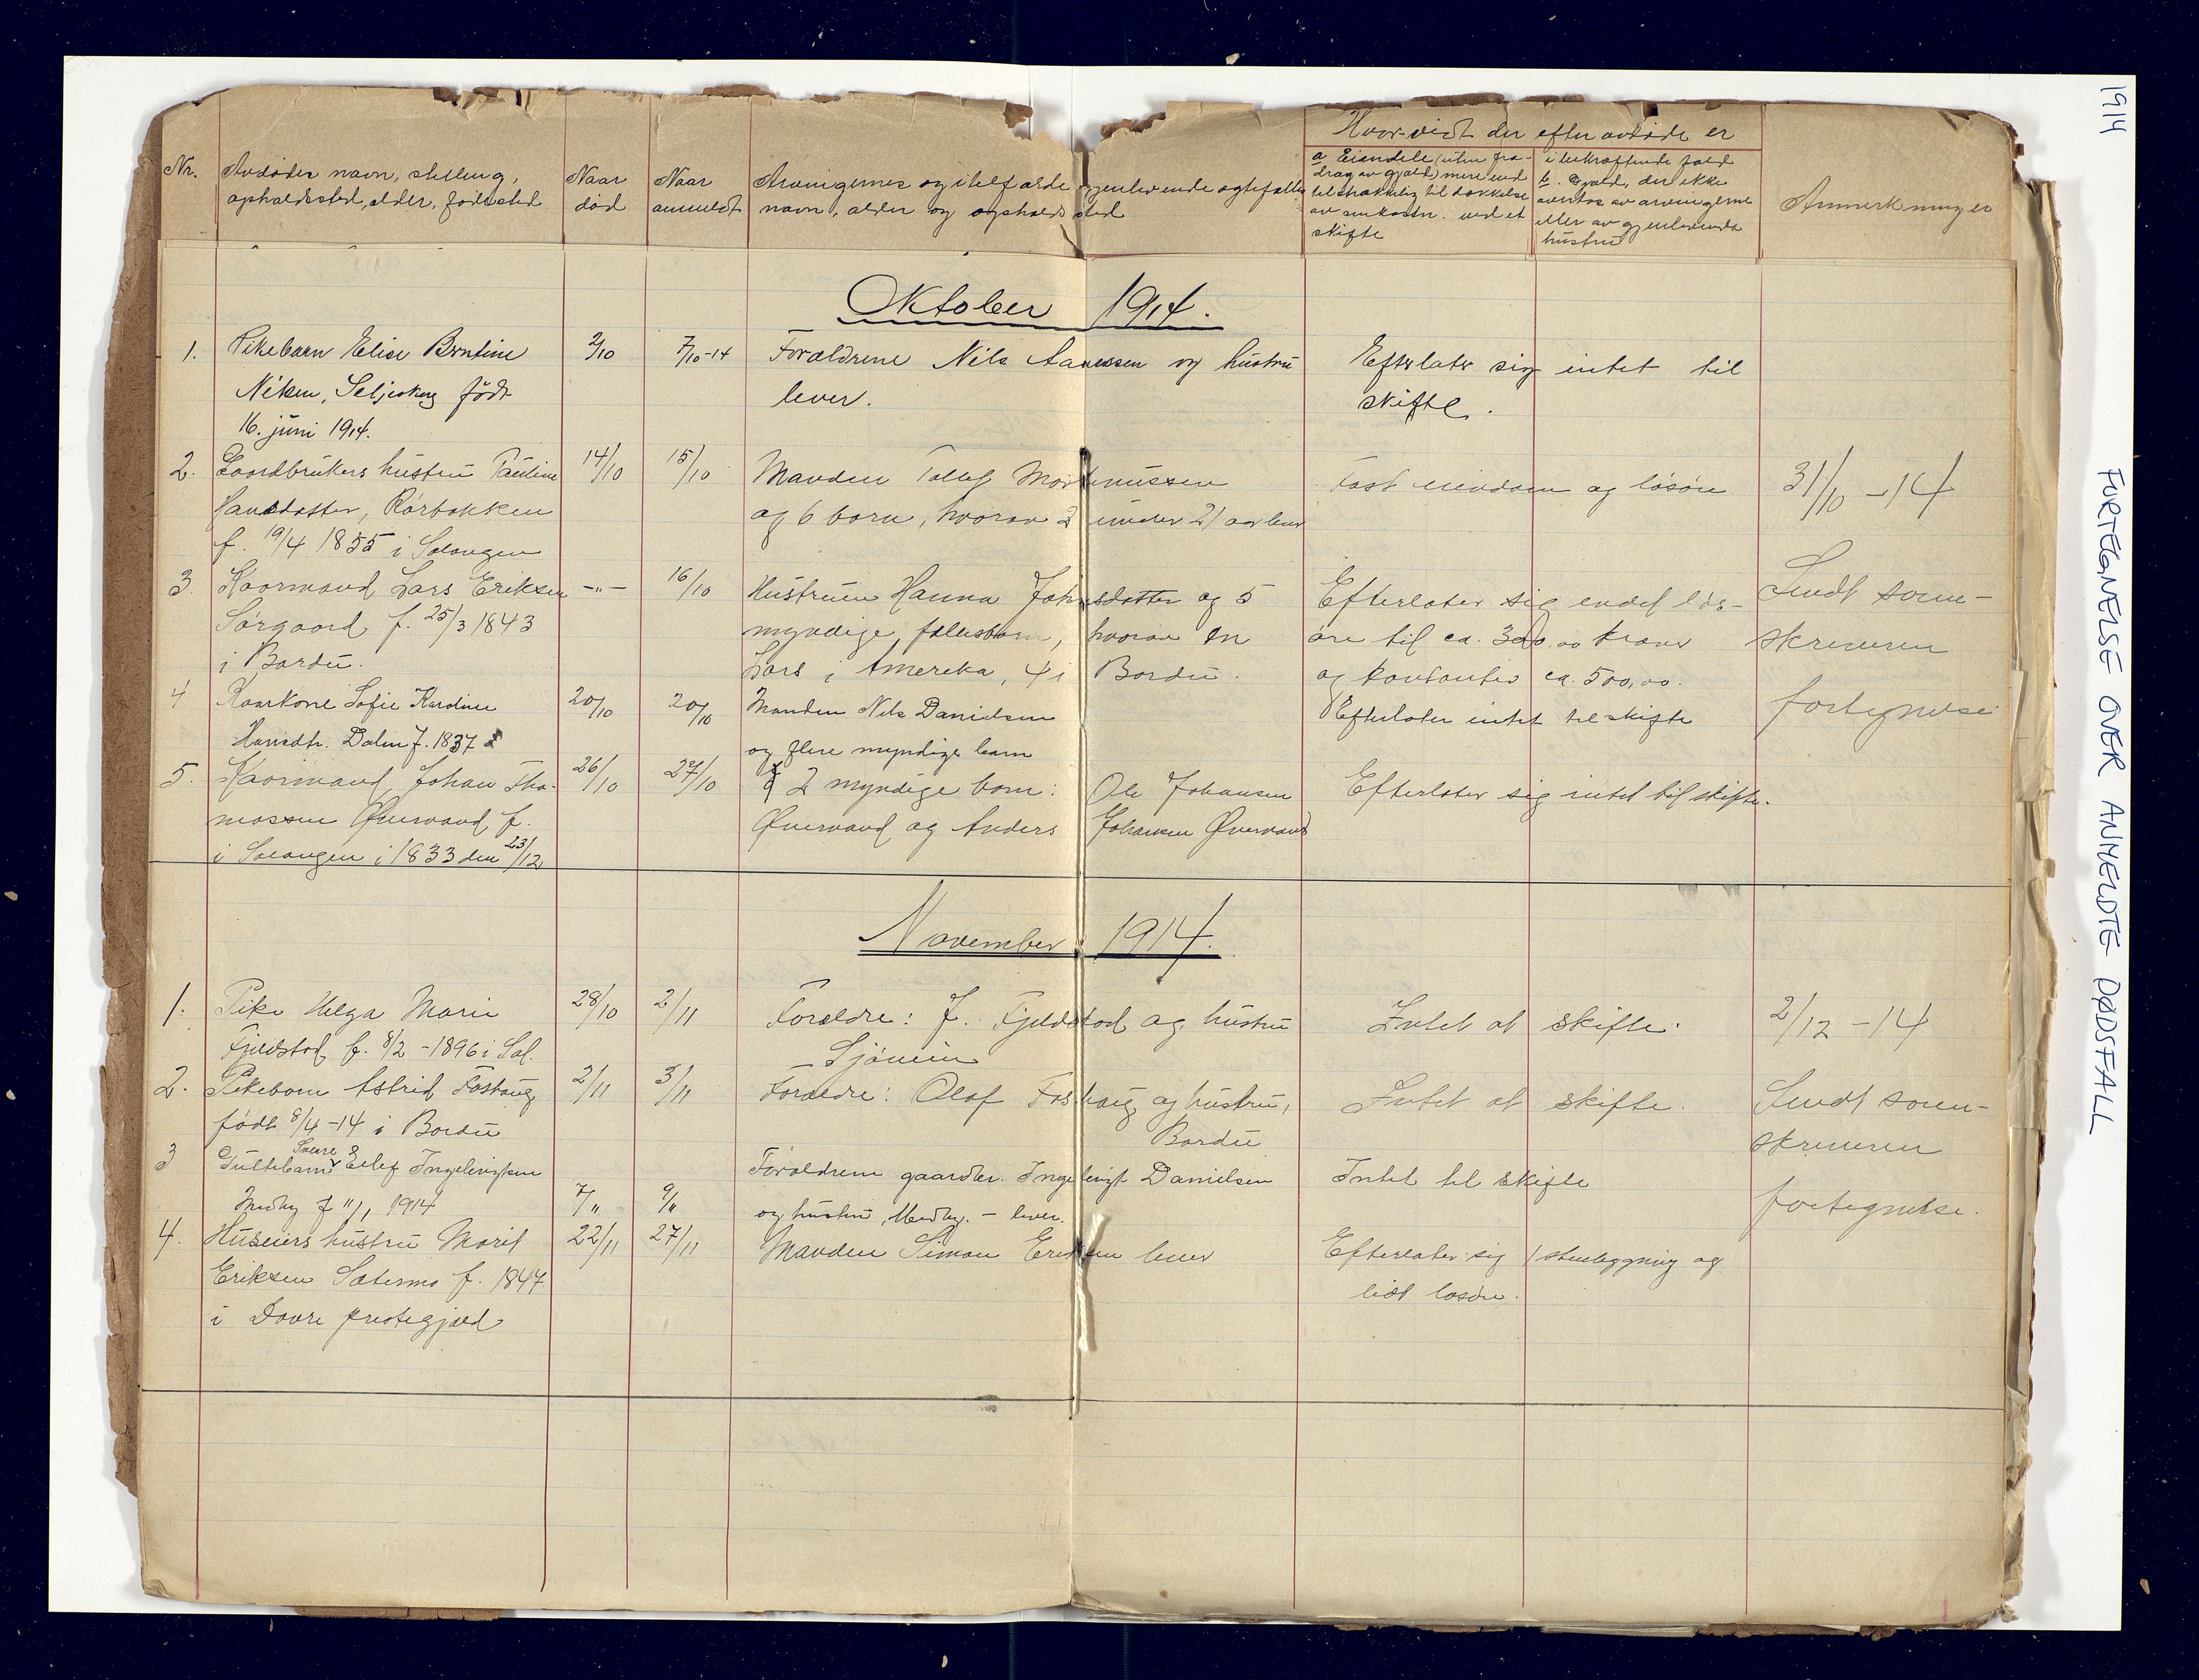 1914
FORTEGNELSE OVER ANMELDTE DØDSFALL
Nr.
Avdødes navn, stilling,
opholdssted, alder, fødested
Naar
død
Naar
anmeldt
Arvingernes og i tilfælde gjenlevende ægtefælles
navn, alder og opholdssted
Hvorvidt der efter avdøde er
a Eiendele (uten fra-
drag av gjæld) mere end
tilstrækkelig til dækkelse
av omkostn. ved et
skifte
i bekræftende fald
b. Gjæld, der ikke
overtas av arvingerne
eller av gjenlevende
hustru
Anmerkninger
Oktober 1914.
1.
Pikebarn Elise Berntine
Nilsen, Seljeskog født
16. juni 1914.
2/10
7/10-14
Forældrene Nils Aanessen og hustru
lever.
Efterlater sig intet til
skifte.
2.
Gaardbrukers hustru Pauline
Hansdatter, Rørbakken
f. 19/4 1855 i Salangen
14/10
15/10
Manden Tollef Mortinussen
og 6 barn, hvorav 2 under 21 aar lever
Fast eiendom og løsøre
31/10 -14
3
Kaarmand Lars Eriksen
Sørgaard f. 25/3 1843
i Bardu.
-"-
16/10
Hustruen Hanna Johnsdatter og 5
myndige fællesbarn, hvorav en
Lars i Amerika, 4 i Bardu.
Efterlater sig endel løs-
øre til ca. 300,00 kroner
og kontanter ca. 500,00.
Sendt soren-
skriveren
fortegnelse
4
Kaarkone Sofie Kardine
Hansdtr. Dalen f. 1837
20/10
20/10
Manden Nils Danielsen
og flere myndige barn
Efterlater intet til skifte
5.
Kaarmand Johan Tho-
massen Øvervand f.
i Salangen i 1833 den 23/12
26/10
27/10
2 myndige barn: Ole Johansen
Øvervand og Anders Johansen Øvervand
Efterlater sig intet til skifte.
November 1914.
1.
Pike Helga Marie
Fjeldstad f. 8/2 -1896 i Sal.
28/10
2/11
Forældre: J. Fjeldstad og hustru
Sjøveien
Intet at skifte.
2/12 -14
2.
Pikebarn Astrid Foshaug
født 8/4 -14 i Bardu
2/11
3/11
Forældre: Olaf Foshaug og hustru,
Bardu
Intet at skifte.
Sendt soren-
skriveren
fortegnelse.
3
Sverre
Guttebarn Eilef Ingebrigtsen
Medby f "/, 1914
7/"
9/"
Forældrene gaardbr. Ingebrigt Danielsen
og hustru, Medby. - lever.
Intet til skifte
4.
Huseiers hustru Marit
Eriksen Sætermo f. 1847
i Dovre prestegjæld
22/11
27/11
Manden Simon Eriksen lever
Efterlater sig 1 stuebygning og
lidt løsøre.